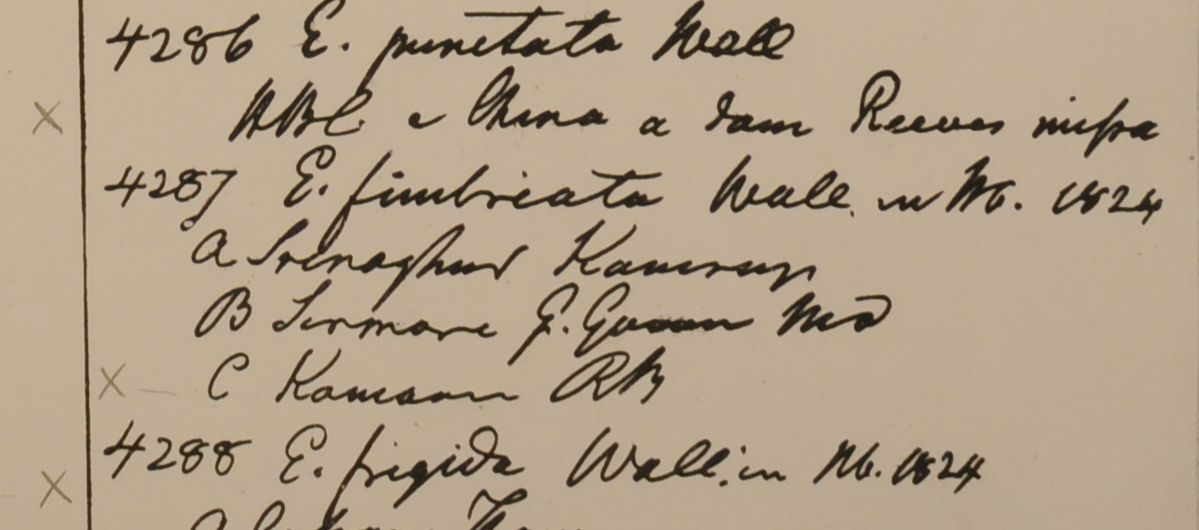 4286 E. punctata Wall
HBC e China a dom Reeves missa
4287 E. fimbriata Wall. in Hb. 1824
A Srinaghur Kamrup
B Sirmore G. Govan MD
C Kamaon RB
4288 E. frigida Wall. in Hb. 1824